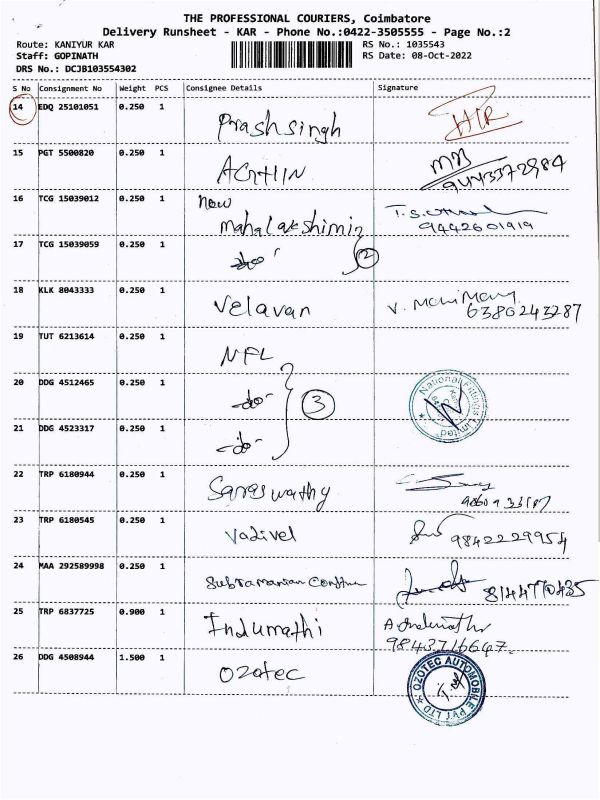 THE PROFESSIONAL COURIERS, Coimbatore
Delivery Runsheet - KAR - Phone No.:0422-3505555 - Page No.:2
Route: KANIYUR KAR RS No.: 1035543
Staff: GOPINATH RS Date: 08-Oct-2022
DRS No.: DCJB103554302
S No Consignment No Weight PCS Consignee Details Signature
14 EDQ 25101051 0.250 1 Prash singh
15 PGT 5500820 0.250 1 9443372984
16 TCG 15039012 0.250 1 New Mahalakshimi 9442601919
17 TCG 15039059 0.250 1 -do- 2
18 KLK 8043333 0.250 1 Velavan V. Mani Many 6380243287
19 TUT 6213614 0.250 1 NFL
20 DDG 4512465 0.250 1 -do- 3 National Fittings Limited
21 DDG 4523317 0.250 1 -do-
22 TRP 6180944 0.250 1 Saraswathy
23 TRP 6180545 0.250 1 Vadivel 9842229954
24 MAA 292589998 0.250 1 Subramanian 8144770435
25 TRP 6837725 0.900 1 Indumathi 9843716647.
26 DDG 4508944 1.500 1 Ozotec OZOTEC AUTOMOBILE PVT LTD